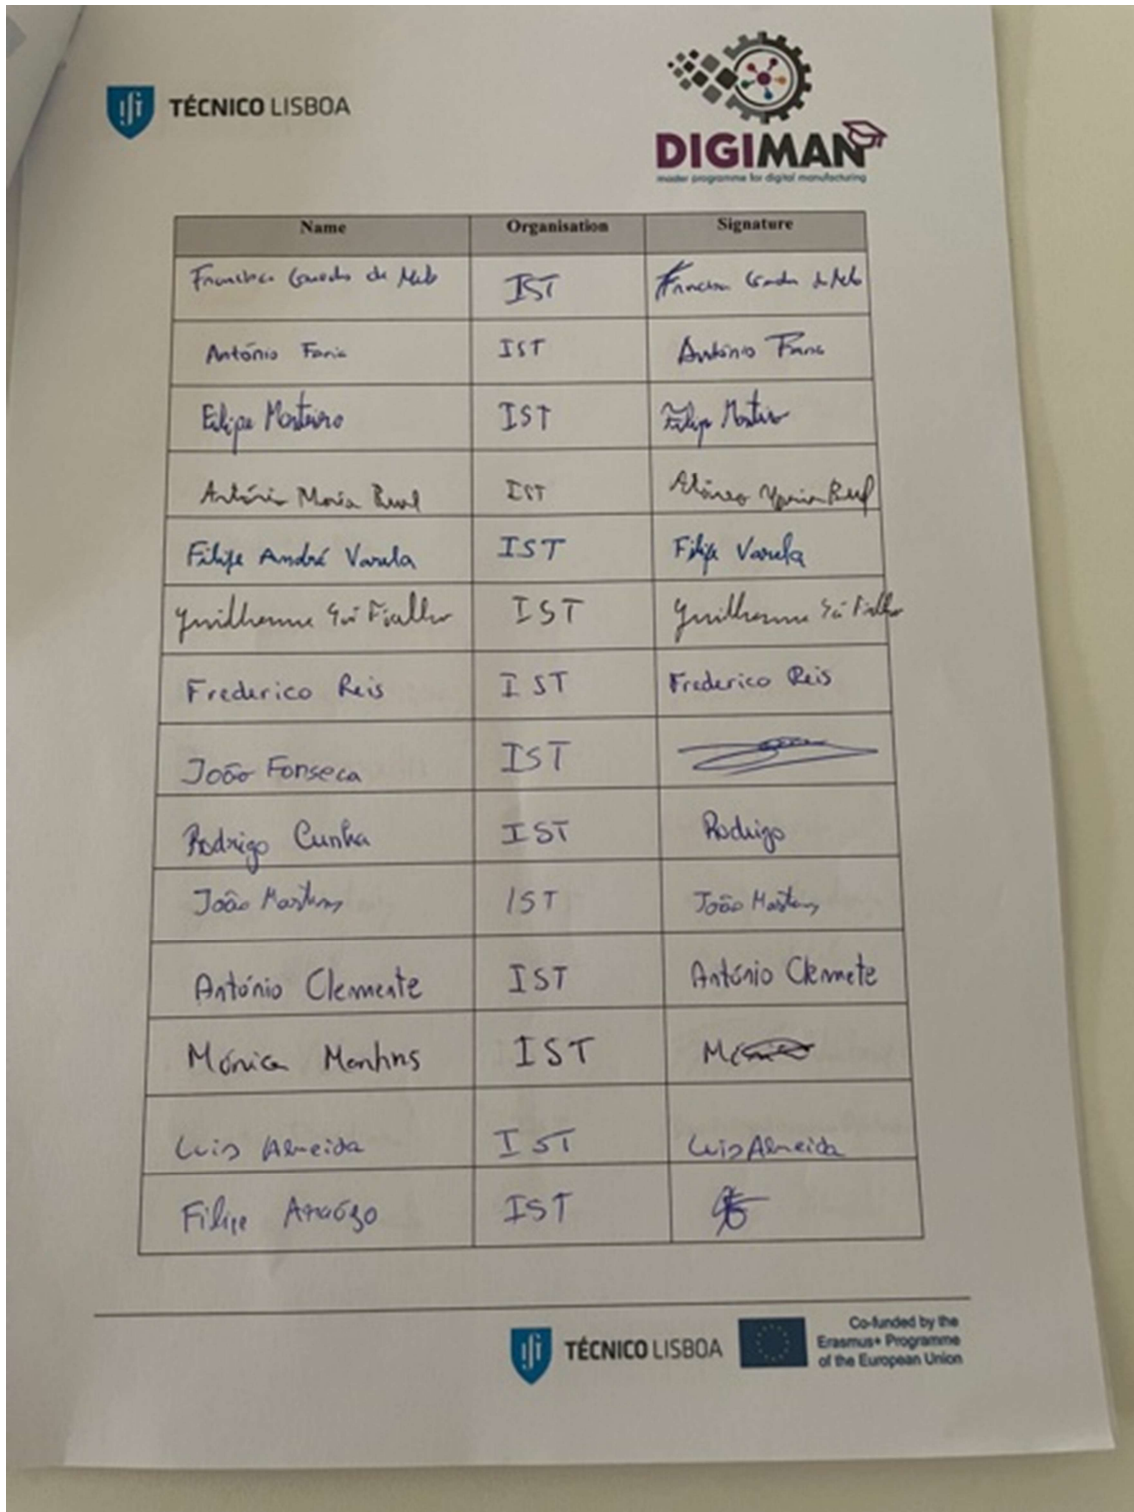 TÉCNICO LISBOA
DIGIMAN
master programme for digital manufacturing
Name Organisation Signature
Francisco de Melo IST de Melo
António Faria IST António Faria
Filipe Monteiro IST Filipe Monteiro
António Maria IST
Filipe André Varela IST Filipe Varela
Guilherme Sá Fialho IST Guilherme Sá Fialho
Frederico Reis IST Frederico Reis
João Fonseca IST
Rodrigo Cunha IST Rodrigo
João Martins IST João Martins
António Clemente IST António Clemete
Mónica Martins IST
Luis Almeida IST Luis Almeida
Filipe Araújo IST
TÉCNICO LISBOA
Co-funded by the
Erasmus+ Programme
of the European Union